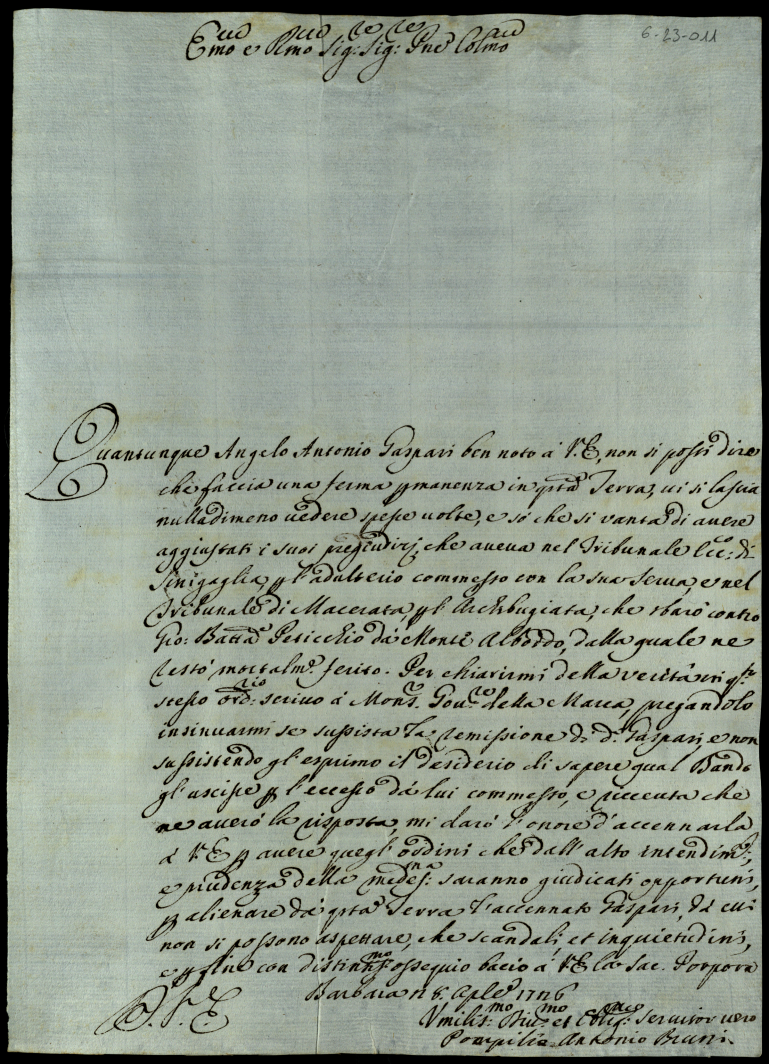 6-23-011
Emo e Rmo Sig: Sig: Pne Colmo
Quantunque Angelo Antonio Gaspari ben noto á V.E, non si possi dire
che faccia una ferma pmanenza in qsta Terra, ui si lascia
nulladimeno uedere spesse uolte, e só che si vanta di auere
aggiustati i suoi pregiudizj, che aueua nel Tribunale Ecc: di
Sinigaglia p l'adulterio commesso con la sua serua, e nel
Tribunale di Macerata, p l'Archibugiata, che sbaró contro
Gio: Batta Peticchio dá Monte Alboddo, dalla quale ne
restó mortalme ferito. Per chiarirmi della veritá in qsto
stesso ordrio scriuo á Monsr Goure della Marca, pregandolo
insinuarmi se sussista la remissione di do Gaspari, e non
sussistendo gl'esprimo il desiderio di sapere qual Bando
gl'uscisse p l'eccesso dá lui commesso, e riceuuta che
ne aueró la risposta, mi daró l'onore d'accennarla
á V.E p auere quegl'ordini che dall'alto intendimto,
e prudenza della medesma saranno giudicati opportuni,
p alienare dá qsta Terra l'accennato Gaspari, dá cui
non si possono aspettare, che scandali et inquietudini,
e p fine con distintmo ossequio bacio á V.E la Sac. Porpora
Barbara 6. Aple 1726
Vmiliss.mo Diumo et Obligmo seruitor uero
Pompilio Antonio Bruni